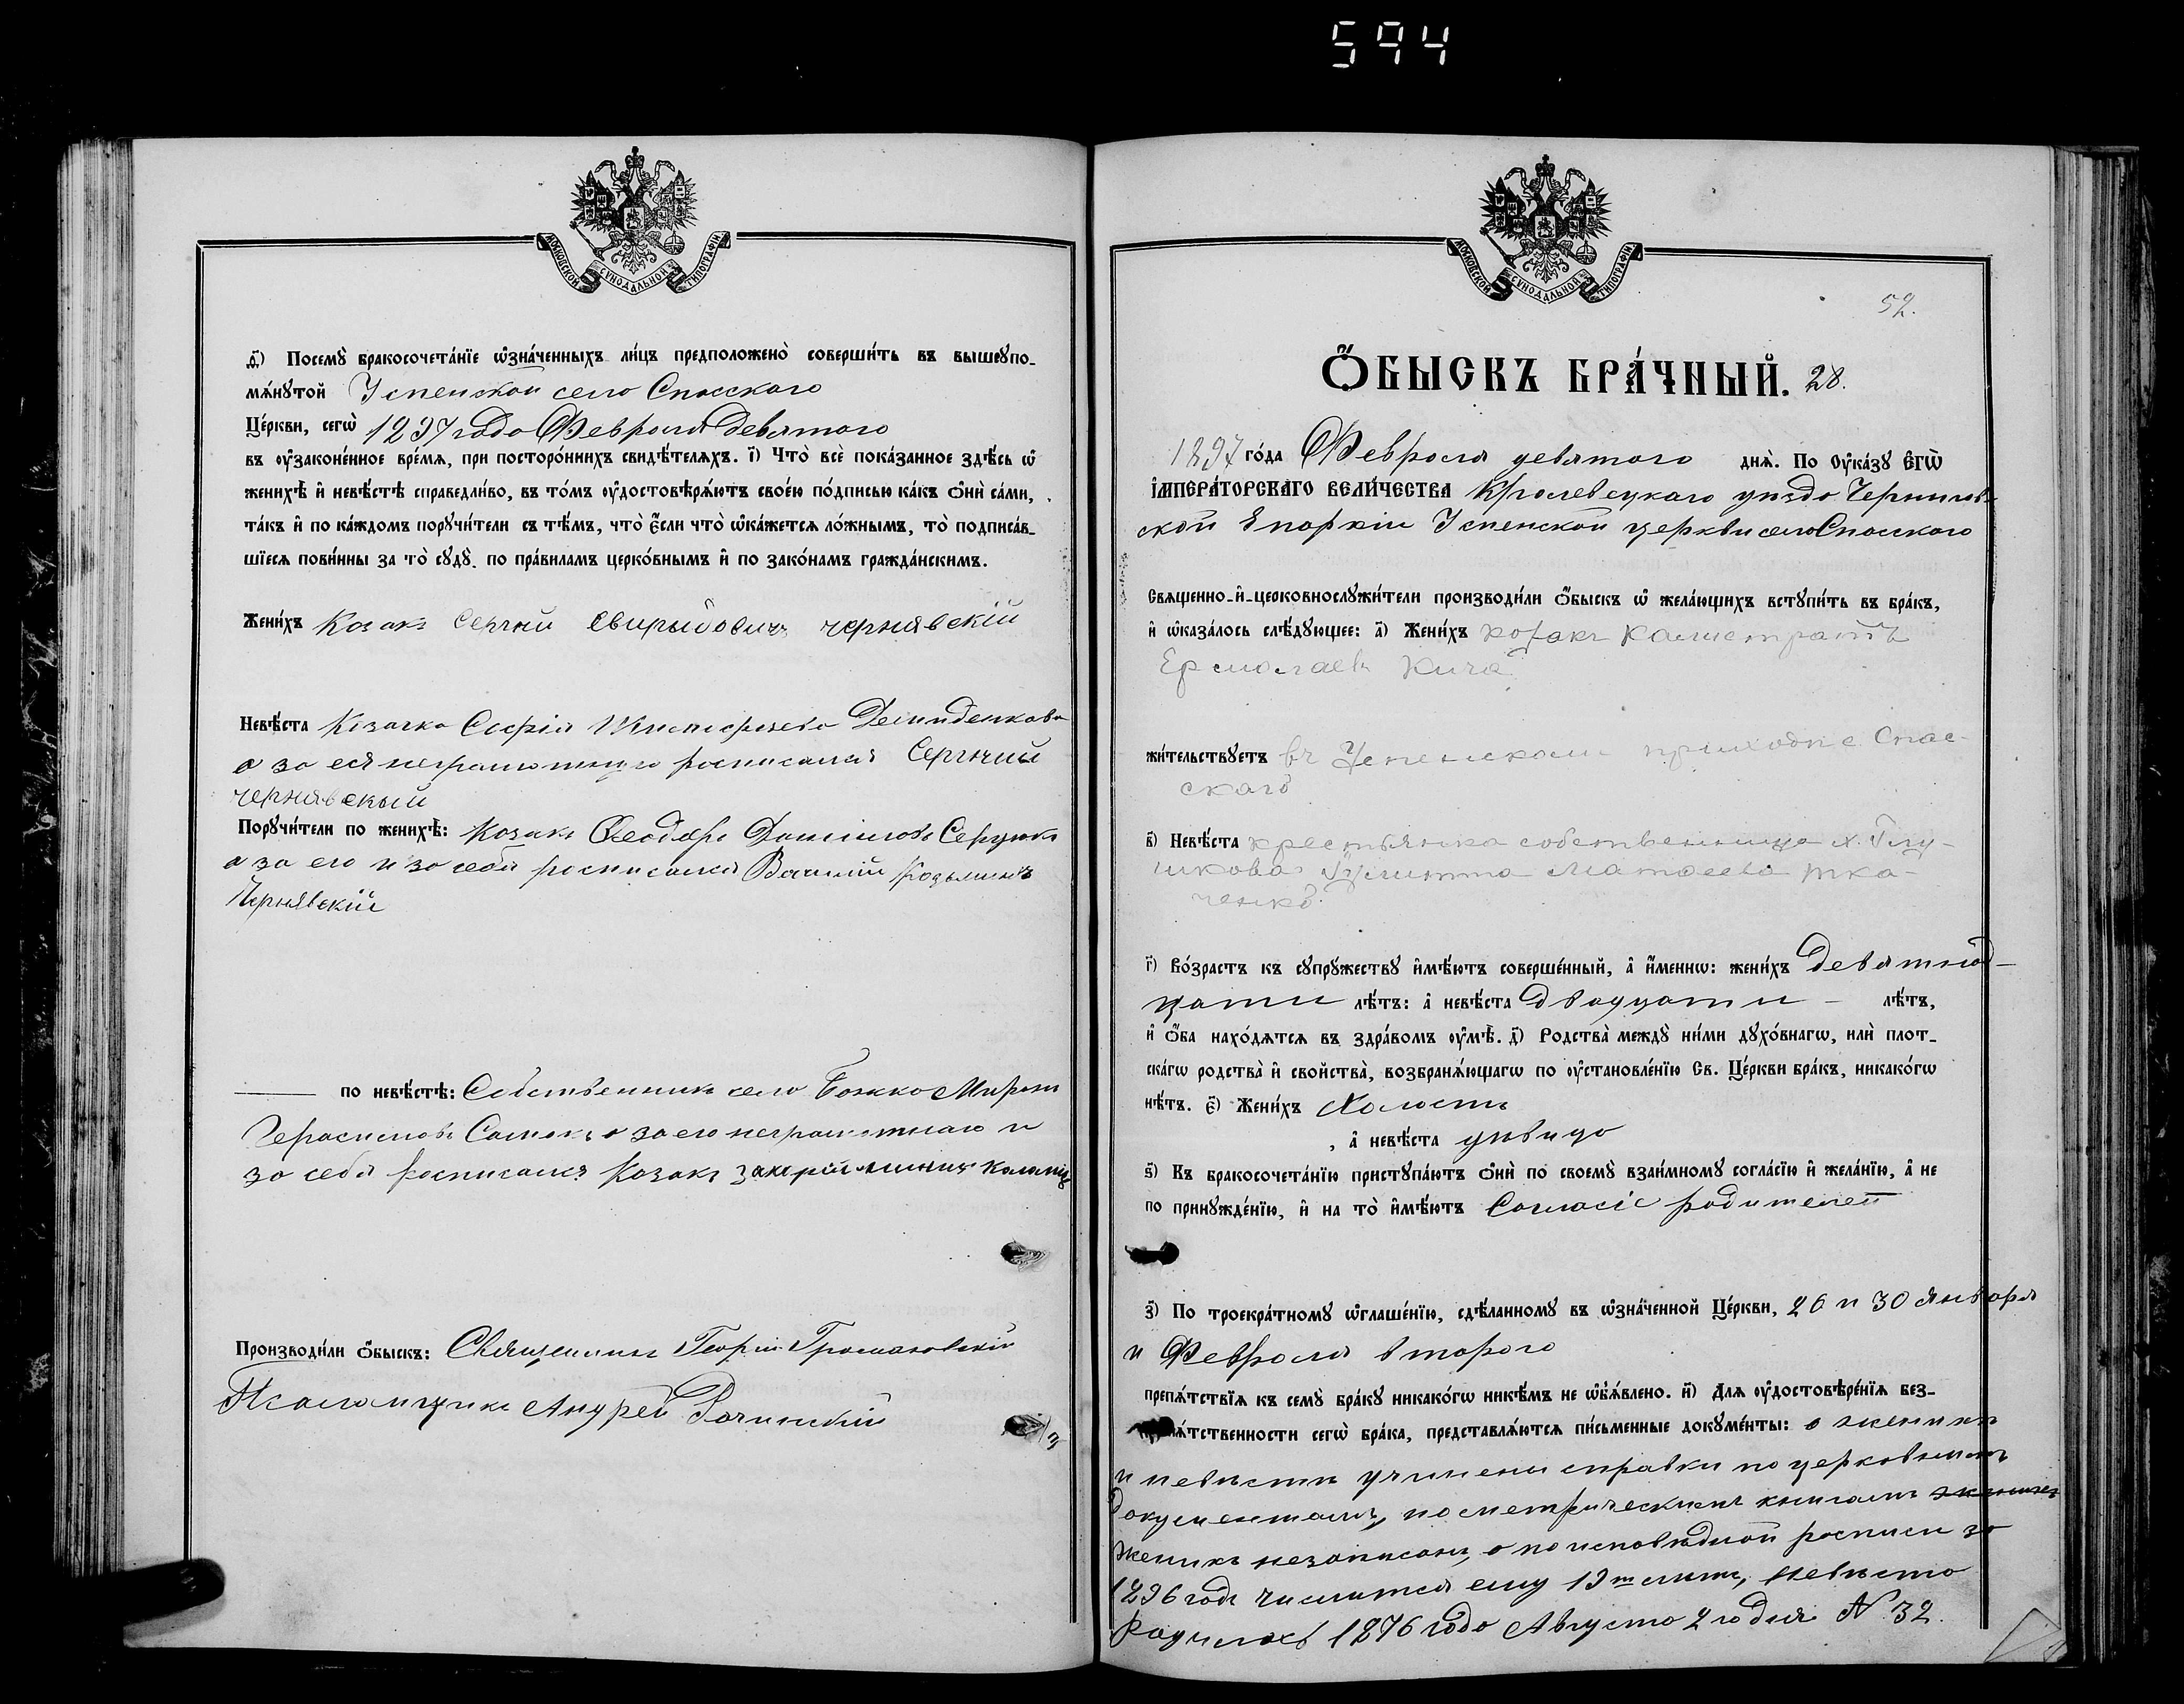 594
МОСКОВСКОЙ СѴНОДАЛЬНОЙ ТИПОГРАФІИ
д҃і) Посемꙋ̀ бракосочета́нїе ѡ҆зна́ченныхъ ли́цъ предположено̀ соверши́ть въ вышеꙋпо-
мѧ́нꙋтой Успенской села Спасскаго
Це́ркви, сегѡ̀ 1897 года Февраля девятаго
въ ᲂу҆законе́нное вре́мѧ, при посторо́ннихъ свидѣ́телѧхъ. і҃) Что̀ всѐ пока́занное здѣ́сь ѡ҆
женихѣ̀ и҆ невѣ́стѣ справедли́во, въ то́мъ ᲂу҆достовѣрѧ́ютъ свое́ю по́дписью ка́къ ѻ҆нѝ са́ми,
та́къ и҆ по ка́ждомъ порꙋчи́тели съ тѣ́мъ, что̀ є҆́сли что̀ ѡ҆ка́жетсѧ ло́жнымъ, то̀ подписа́в-
шїесѧ пови́нны за то̀ сꙋдꙋ̀ по пра́виламъ церко́внымъ и҆ по зако́намъ гражда́нскимъ.
Жени́хъ Козакъ Сергѣй Свирыдовичъ чернявскій
Невѣ́ста Козачка Софія Демиденкова
а за ея неграмотную росписался Сергѣй
чернявскый
Порꙋчи́тели по женихѣ̀: Козакъ Феодоръ Даніиловъ Сердюкъ
а за его и за себя росписался Василій Козьминъ
Чернявскій
по невѣ́стѣ: Собственникъ села Божка Миронъ
Герасимовъ а за его неграмотнаго и
за себя росписался Козакъ
Производи́ли ѻ҆́быскъ: Священникъ Георгій Громаковскій
Псаломщикъ Андрей Рачинскій
МОСКОВСКОЙ СѴНОДАЛЬНОЙ ТИПОГРАФІИ
52.
Ѻ҆́БЫСКЪ БРА́ЧНЫЙ. 28.
1897 го́да Февраля девятаго днѧ̀. По Оу҆ка́зꙋ Є҆ГѠ̀
І҆МПЕРА́ТОРСКАГО ВЕЛИ́ЧЕСТВА Кролевецкаго уѣзда Чернигов-
ской Епархіи Успенской церкви села Спасскаго
Свѧщенно-и҆-церковнослꙋжи́тели производи́ли ѻ҆́быскъ ѡ҆ жела́ющихъ встꙋпи́ть въ бра́къ,
и҆ ѡ҆каза́лось слѣ́дꙋющее: а҃) Жени́хъ козакъ Калистратъ
Ермолаевъ Кича
жи́тельствꙋетъ въ Успенскомъ приходѣ с. Спас-
скаго
в҃) Невѣ́ста крестьянка собственница х. Глу-
шкова Матѳеева Тка-
ченко
г҃) Во́зрастъ къ сꙋпрꙋ́жествꙋ и҆мѣ́ютъ соверше́нный, а҆ и҆́меннѡ: жени́хъ девятнад-
цати лѣ́тъ: а҆ невѣ́ста двадцати лѣ́тъ,
и҆ ѻ҆́ба нахо́дѧтсѧ въ здра́вомъ ᲂу҆мѣ̀. д҃) Родства̀ междꙋ̀ ни́ми дꙋхо́внагѡ, илѝ плот-
ска́гѡ родства̀ и҆ свойства̀, возбранѧ́ющагѡ по ᲂу҆становле́нїю Св. Це́ркви бра́къ, никако́гѡ
нѣ́тъ. є҃) Жени́хъ Холостъ
, а҆ невѣ́ста дѣвица
ѕ҃) Къ бракосочета́нїю пристꙋпа́ютъ ѻ҆нѝ по своемꙋ̀ взаи́мномꙋ согла́сїю и҆ жела́нїю, а҆ не
по принꙋжде́нїю, и҆ на то̀ и҆мѣ́ютъ Согласіе родителей
з҃) По троекра́тномꙋ ѡ҆глаше́нїю, сдѣ́ланномꙋ въ ѡ҆зна́ченной Це́ркви, 26 и 30 Января
и Февраля втораго
препѧ́тствїѧ къ семꙋ̀ бра́кꙋ никако́гѡ никѣ́мъ не ѡ҆б̾ѧ́влено. и҃) Для ᲂу҆достовѣре́нїѧ без-
ѧ́тственности сегѡ̀ бра́ка, представлѧ́ютсѧ пи́сьменные докꙋме́нты: о женихѣ
и невѣстѣ учинены справки по церковнымъ
документамъ, по метрическимъ книгамъ
женихъ незаписанъ, а по исповѣдной росписи за
1896 годъ числится ему 19 лѣтъ, невѣста
родилась 1876 года Августа 2 го дня № 32.